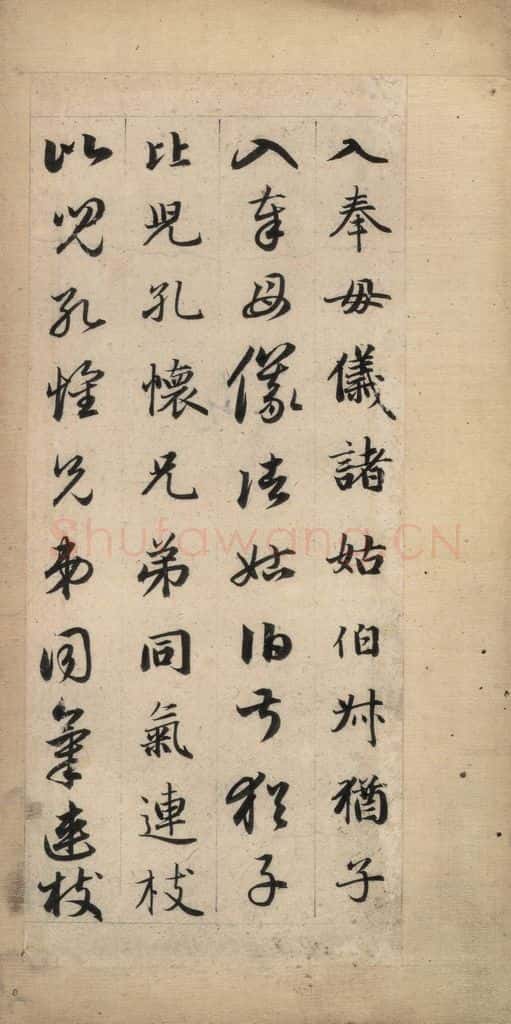 入奉母儀諸姑伯叔猶子
入奉母儀諸姑伯叔猶子
比兒孔懷兄弟同氣連枝
比兒孔懷兄弟同氣連枝
Shufawang.CN